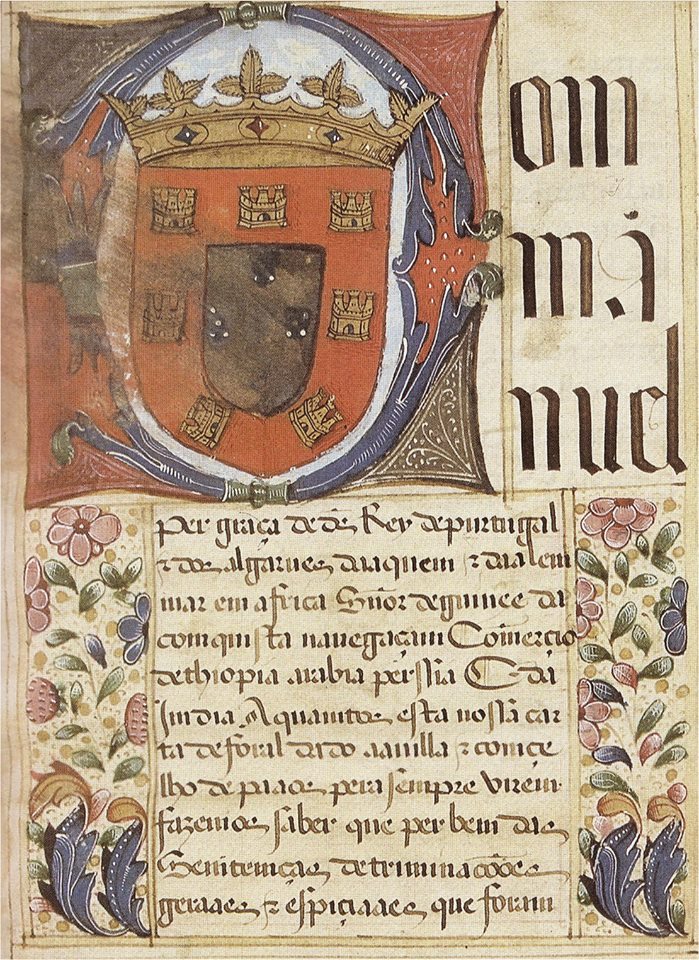 om
ma
nuel
per graça de ds̃ Rey de purtugal
z dos algarues daaquem z daalem
mar em africa Sñor de guinee da
comquista nauegaçam Comercio
dethiopia arabia perssia E da
India A quamtos esta nossa car
ta de foral dado aauilla z comçe
lho de paaos pera sempre virem
fazemos saber que per bem das
Semtemças detriminações
geraaes z espiçiaaes que foram